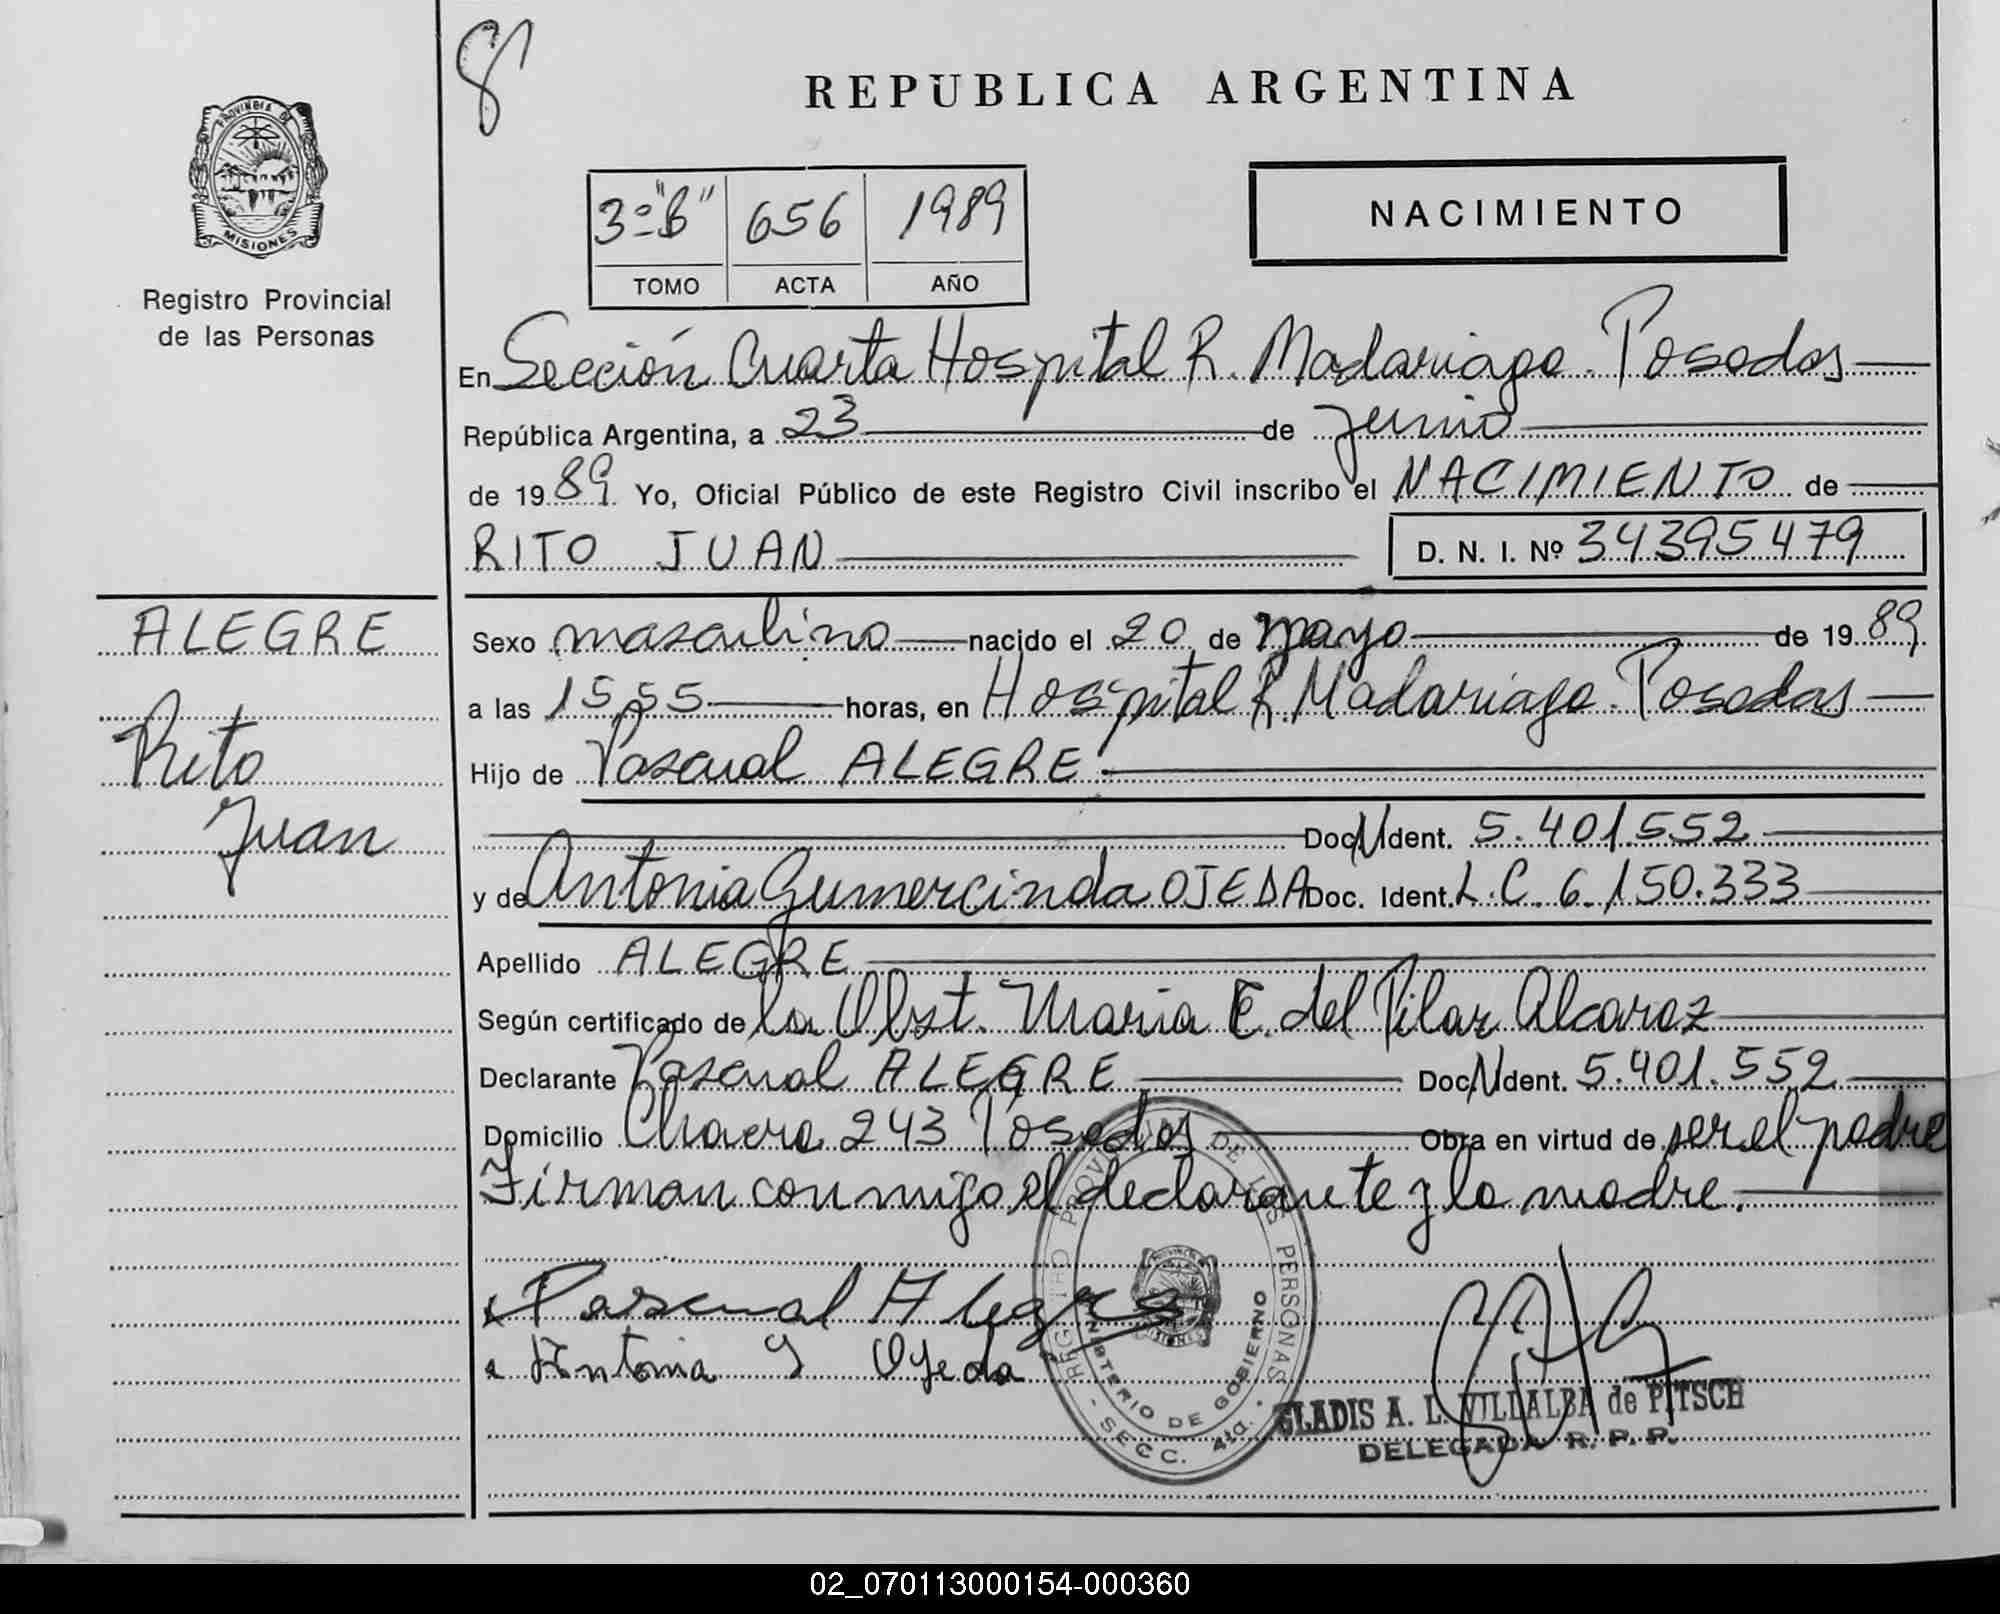 8
REPUBLICA ARGENTINA
PROVINCIA DE
MISIONES
Registro Provincial
de las Personas
3º "B" 656 1989
TOMO ACTA AÑO
NACIMIENTO
En Sección Cuarta Hospital R. Madariaga. Posadas
República Argentina, a 23 de junio
de 1989. Yo, Oficial Público de este Registro Civil inscribo el NACIMIENTO de
RITO JUAN D. N. I. Nº 34395479
ALEGRE
Rito
Juan
Sexo masculino nacido el 20 de mayo de 1989
a las 15,55 horas, en Hospital R. Madariaga. Posadas
Hijo de Pascual ALEGRE
Doc. Ident. 5.401.552
y de Antonia Gumercinda OJEDA Doc. Ident. L.C. 6.150.333
Apellido ALEGRE
Según certificado de la Obst. Maria E. del Pilar Alcaraz
Declarante Pascual ALEGRE Doc. Ident. 5.401.552
Domicilio Chacra 243 Posadas Obra en virtud de ser el padre
Firman conmigo el declarante y la madre.
Pascual Alegre
Antonia G Ojeda
REGISTRO PROVINCIAL DE LAS PERSONAS
MINISTERIO DE GOBIERNO
- SECC. 4ta. -
GLADIS A. L. VILLALBA de PITSCH
DELEGADA R. P. P.
02_070113000154-000360